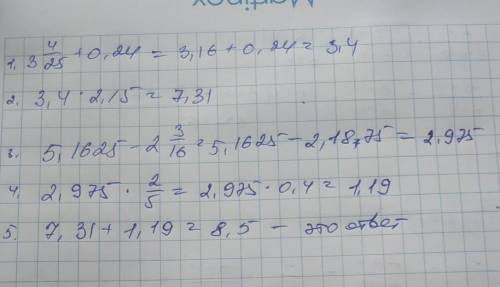 1. 3 4/25 + 0,24 = 3,16 + 0,24 = 3,4
2. 3,4 · 2,15 = 7,31
3. 5,1625 - 2 3/16 = 5,1625 - 2,1875 = 2,975
4. 2,975 · 2/5 = 2,975 · 0,4 = 1,19
5. 7,31 + 1,19 = 8,5 - это ответ